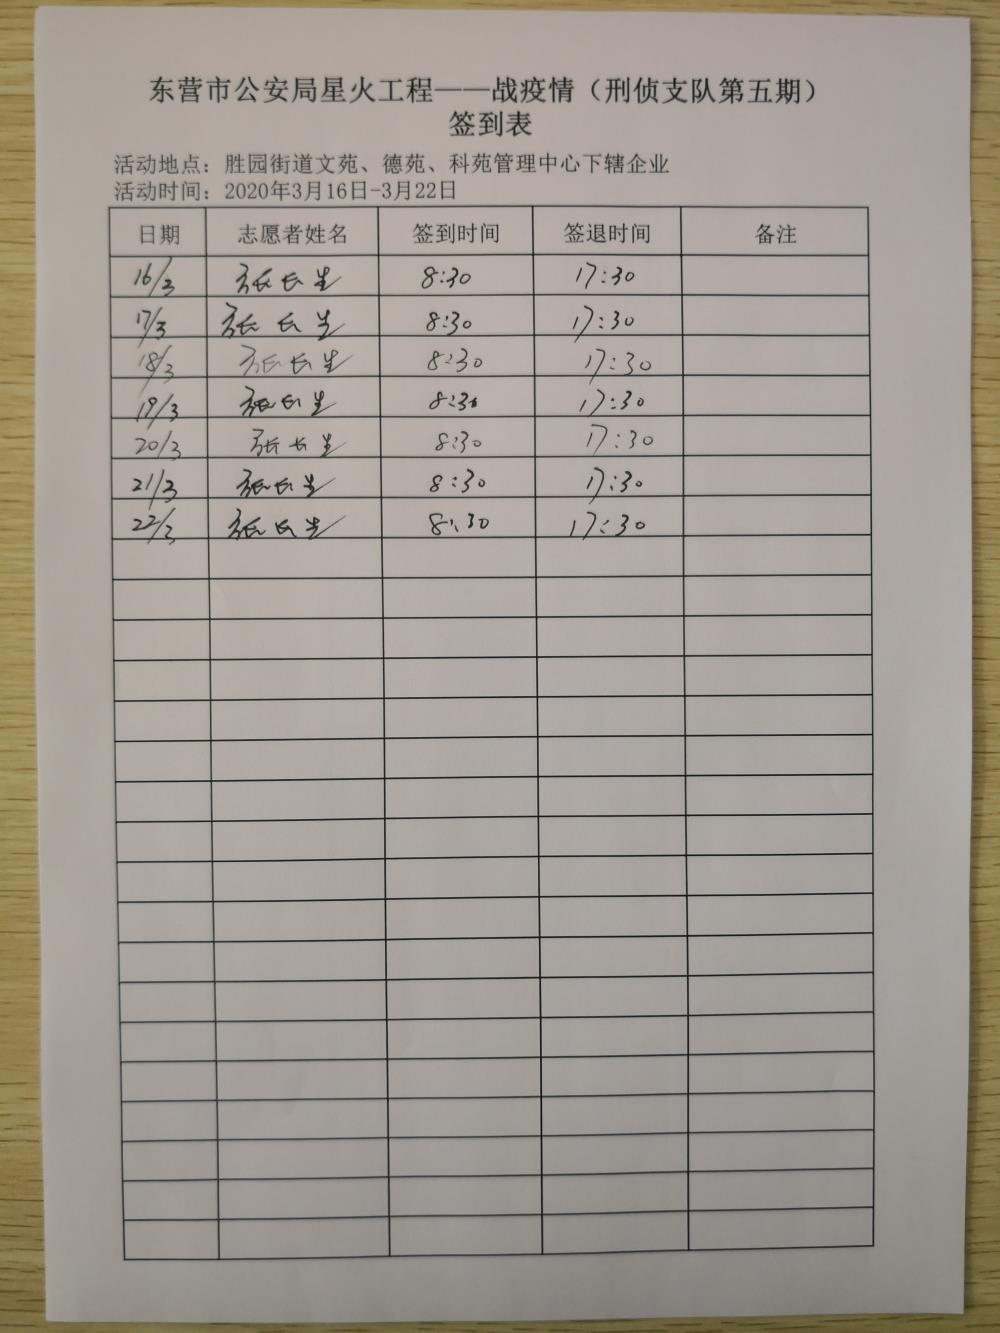 东营市公安局星火工程——战疫情（刑侦支队第五期）
签到表
活动地点：胜园街道文苑、德苑、科苑管理中心下辖企业
活动时间：2020年3月16日-3月22日
日期 志愿者姓名 签到时间 签退时间 备注
16/3 张长生 8:30 17:30
17/3 张长生 8:30 17:30
18/3 张长生 8:30 17:30
19/3 张长生 8:30 17:30
20/3 张长生 8:30 17:30
21/3 张长生 8:30 17:30
22/3 张长生 8:30 17:30